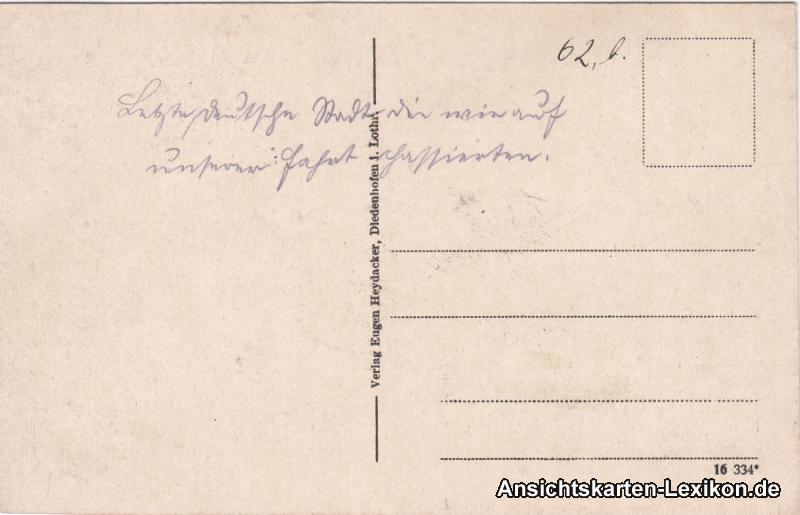 62, b.
Letzte deutsche Stadt die wir auf
unserer Fahrt passierten.
Verlag Eugen Heydacker, Diedenhofen i. Lothr.
16 334*
Ansichtskarten-Lexikon.de